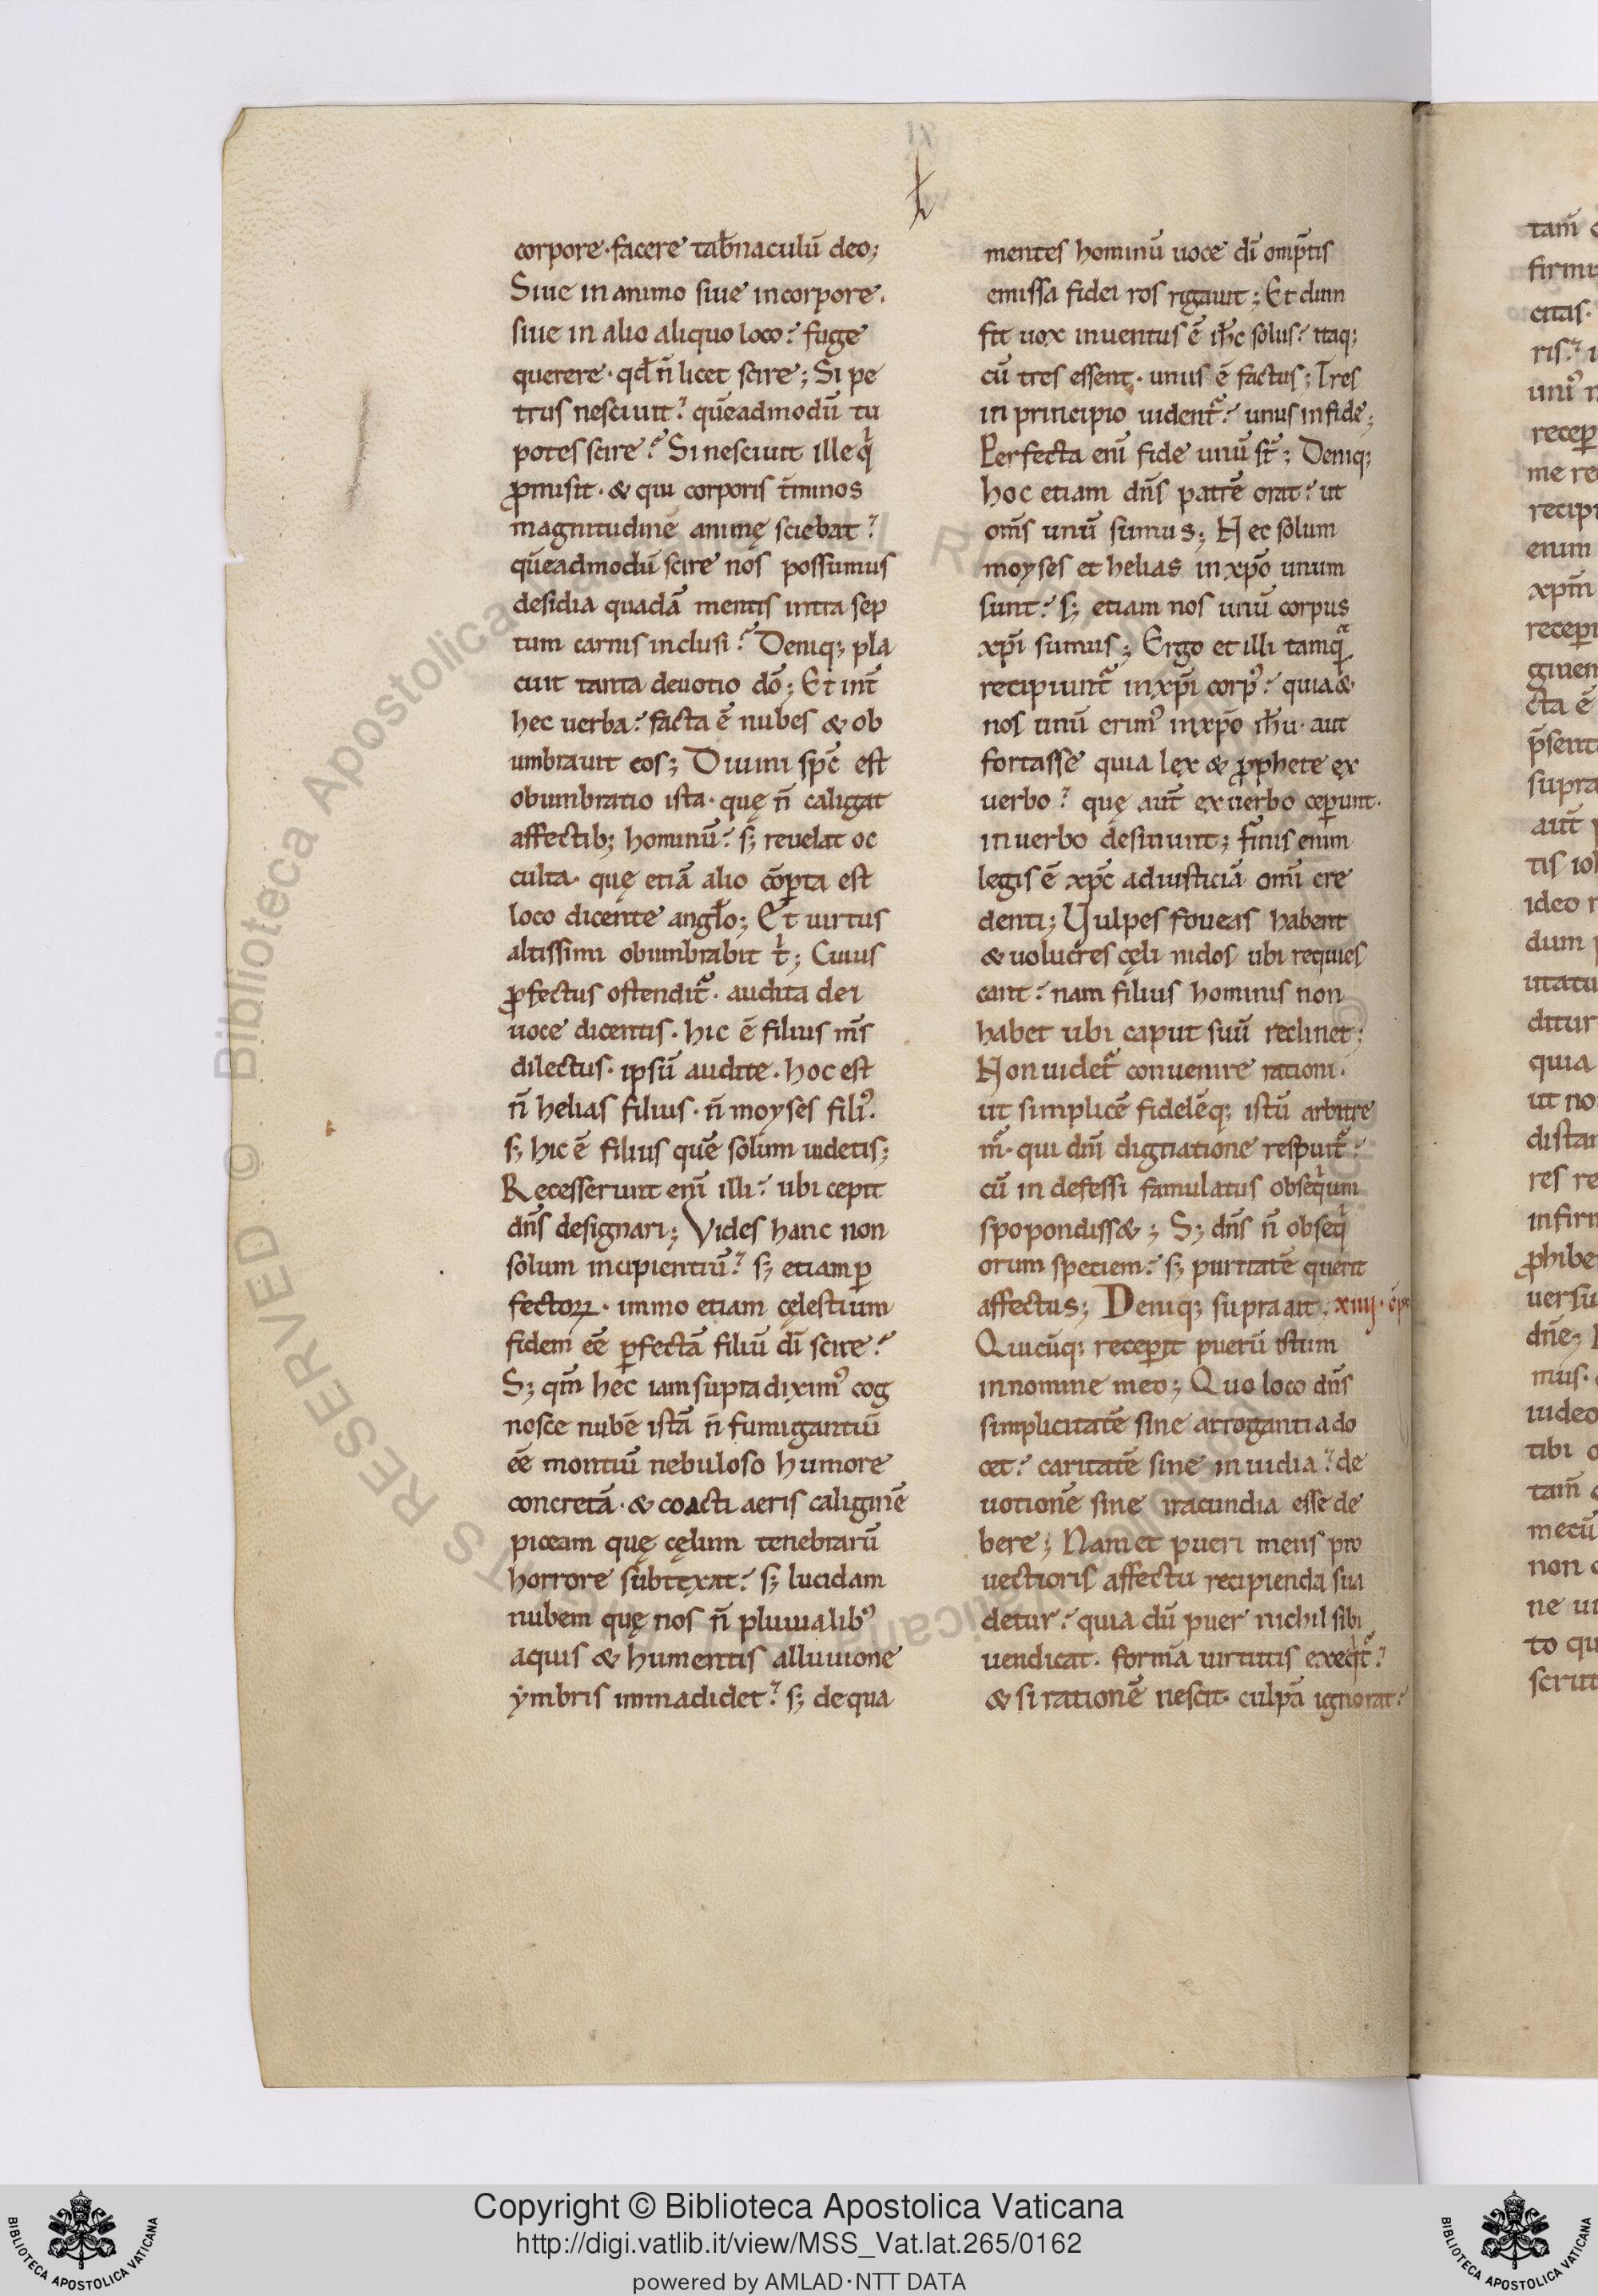 corpore·facere tab̄naculū deo;
Siue in animo siue in corpore.
siue in alio aliquo loco? fuge
querere· qd̄ n̄ licet scire; Si pe
trus nesciuit? quēadmodū tu
potes scire? Si nesciuit ille qͥ
ꝓmisit· & qui corporis t̄minos
magnitudinē animę sciebat?
quēadmodū scire nos possumus
desidia quadā mentis intra sep
tum carnis inclusi? Deniq; pla
cuit tanta deuotio dō; Et int̄
hec uerba? facta ē nubes & ob
umbrauit eos; Diuini sp̄c est
obumbratio ista· quę n̄ caligat
affectib; hominū? s; reuelat oc
culta· quę etiā alio cōꝑta est
loco dicente angl̄o; Et uirtus
altissimi obumbrabit tͥ; Cuius
ꝓfectus ostendit᷑· audita dei
uoce dicentis· hic ē filius m̄s
dilectus· ipsū audite· hoc est
n̄ helias filius· n̄ moyses filiꝰ.
s; hic ē filius quē solum uidetis;
Recesserunt eni̅ illi? ubi cepit
dn̄s designari; Vides hanc non
solum incipientiū? s; etiam ꝑ
fectoꝝ· immo etiam cęlestium
fidem eē ꝑfectā filiū dī scire?
S; qm̄ hec iam supra diximꝰ cog
nosce nubē istā n̄ fumigantiū
eē montiū nebuloso humore
concretā· & coacti aeris caliginē
piceam quę cęlum tenebrarū
horrore subtęxat? s; lucidam
nubem quę nos n̄ pluuialibꝰ
aquis & humentis alluuione
ymbris immadidet? s; de qua
mentes hominū uoce dī omp̄tis
emissa fidei ros rigauit; Et dum
fit uox inuentus ē ih̄c solus? itaq;
cū tres essent· unus ē factus; Tres
in principio uident᷑? unus in fide;
Perfecta eni̅ fide unū st̄; Deniq;
hoc etiam dn̄s patrē orat? ut
om̄s unū sumus; Nec solum
moyses et helias in xp̄o unum
sunt? s; etiam nos unū corpus
xp̄i sumus; Ergo et illi tamqͣ
recipiunt᷑ in xp̄i corpꝰ? quia &
nos unū erimꝰ in xp̄o ih̄u· aut
fortasse quia lex & ꝓphete ex
uerbo? quę aut̄ ex uerbo ceperunt·
in uerbo desinunt; finis enim
legis ē xp̄c ad iusticiā omi̅ cre
denti; Vulpes foueas habent
& uolucres cęli nidos ubi requies
cant? nam filius hominis non
habet ubi caput suū reclinet;
Non uidet᷑ conuenire rationi·
ut simplicē fidelēq; istū arbitre
m᷑· qui dn̄i dignatione respuit᷑?
cū indefessi famulatus obseqͥum
spopondiss&; S; dn̄s n̄ obseqͥ
orum speciem? s; puritatē querit
affectus; Deniq; supra ait. xiiij·
Quicūq; receꝑit puerū istum
in nomine meo; Quo loco dn̄s
simplicitatē sine arrogantia do
cet? caritatē sine inuidia? de
uotionē sine iracundia esse de
bere; Nam et pueri mens pro
uectioris affectu recipienda sua
detur? quia dū puer nichil sibi
uendicat· formā uirtutis exeqͥt᷑?
& si rationē nescit· culpā ignorat?
tam̄
firmi
citas·
ris?
uniꝰ
receꝑ
me re
recipi
enim
xpm̄
receꝑi
ginem
cta ē
p̄sent
supra
aut̄
tis
ideo
dum
utatu
ditur
quia
ut no
distan
res re
infirm
ꝓhibe
uersū
dn̄e;
mus·
uideo
tibi
tam̄
mecū
non
ne ui
to qu
scrut
© Biblioteca Apostolica Vaticana ALL RIGHTS RESERVED
Copyright © Biblioteca Apostolica Vaticana
http://digi.vatlib.it/view/MSS_Vat.lat.265/0162
powered by AMLAD·NTT DATA
BIBLIOTECA APOSTOLICA VATICANA
BIBLIOTECA APOSTOLICA VATICANA